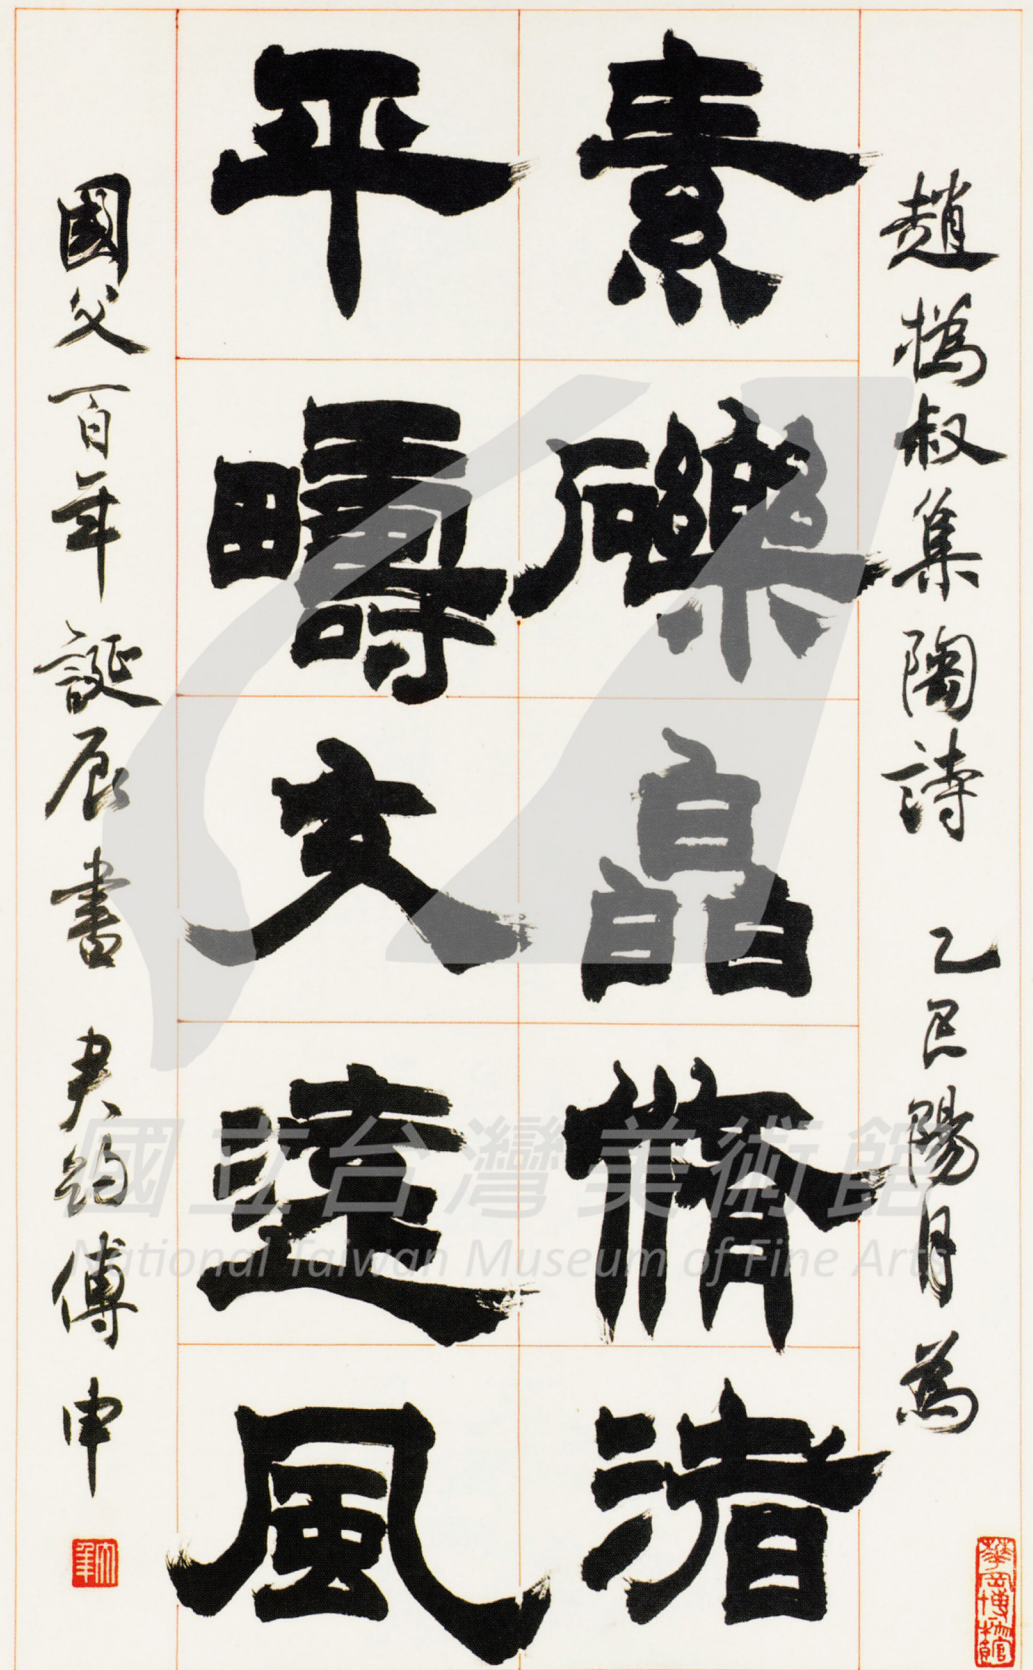 趙撝叔集陶詩 乙巳陽月為
素礫皛脩渚
平疇交遠風
國父百年誕辰書 君約傅申
華岡博物館
國立台灣美術館
National Taiwan Museum of Fine Arts